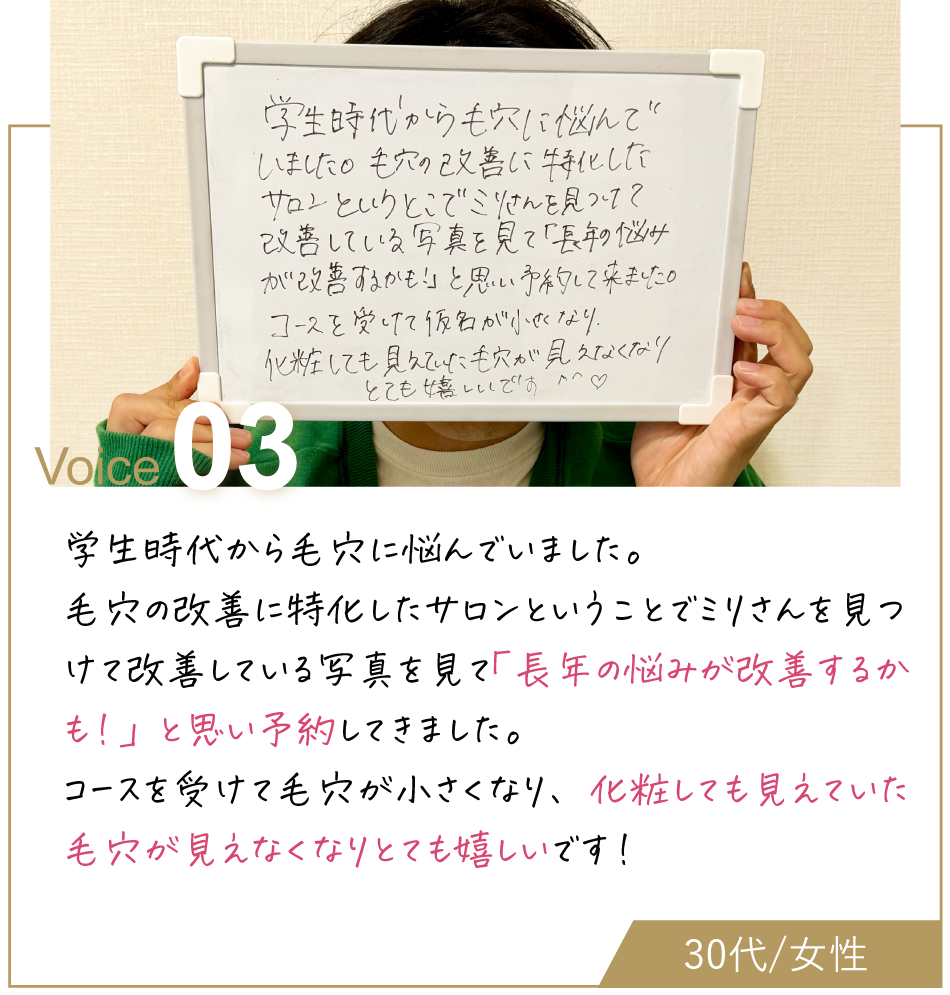 学生時代から毛穴に悩んで
いました。毛穴の改善に特化した
サロンということでミリさんを見つけて
改善している写真を見て「長年の悩み
が改善するかも!」と思い予約して来ました。
コースを受けて仮名が小さくなり、
化粧しても見えていた毛穴が見えなくなり
とても嬉しいです ^^ ♡
Voice 03
学生時代から毛穴に悩んでいました。
毛穴の改善に特化したサロンということでミリさんを見つ
けて改善している写真を見て「長年の悩みが改善するか
も!」と思い予約してきました。
コースを受けて毛穴が小さくなり、化粧しても見えていた
毛穴が見えなくなりとても嬉しいです!
30代/女性